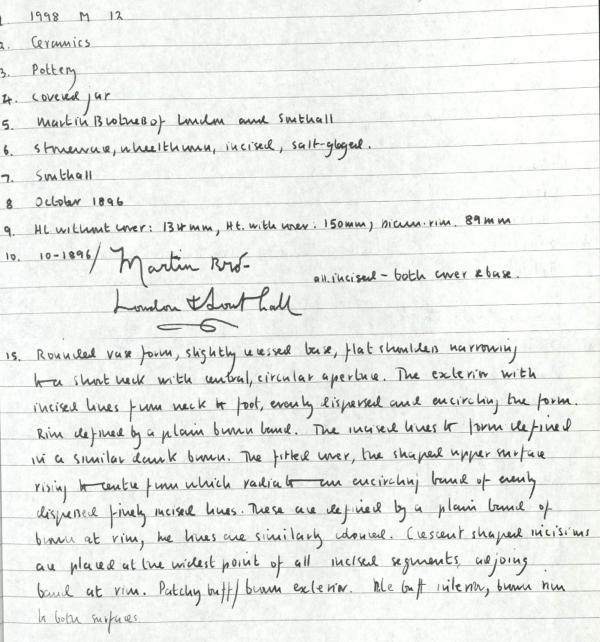 1 1998 M 12
2. Ceramics
3. Pottery
4. Covered jar
5. Martin Brothers of London and Southall
6. Stoneware, wheelthrown, incised, salt-glazed.
7. Southall
8 October 1896
9. Ht without cover: 134mm, Ht. with cover: 150mm, diam. rim. 89mm
10. 10-1896/ Martin Bros-
all incised - both cover & base.
London & Southall
15. Rounded vase form, slightly recessed base, flat shoulders narrowing
to a short neck with central, circular aperture. The exterior with
incised lines from neck to foot, evenly dispersed and encircling the form.
Rim defined by a plain brown band. The incised lines to form defined
in a similar dark brown. The fitted cover, the shaped upper surface
rising to centre from which radiate an encircling band of evenly
dispersed finely incised lines. These are defined by a plain band of
brown at rim, the lines are similarly coloured. Crescent shaped incisions
are placed at the widest point of all incised segments, adjoing
band at rim. Patchy buff/brown exterior. Pale buff interior, brown rim
to both surfaces